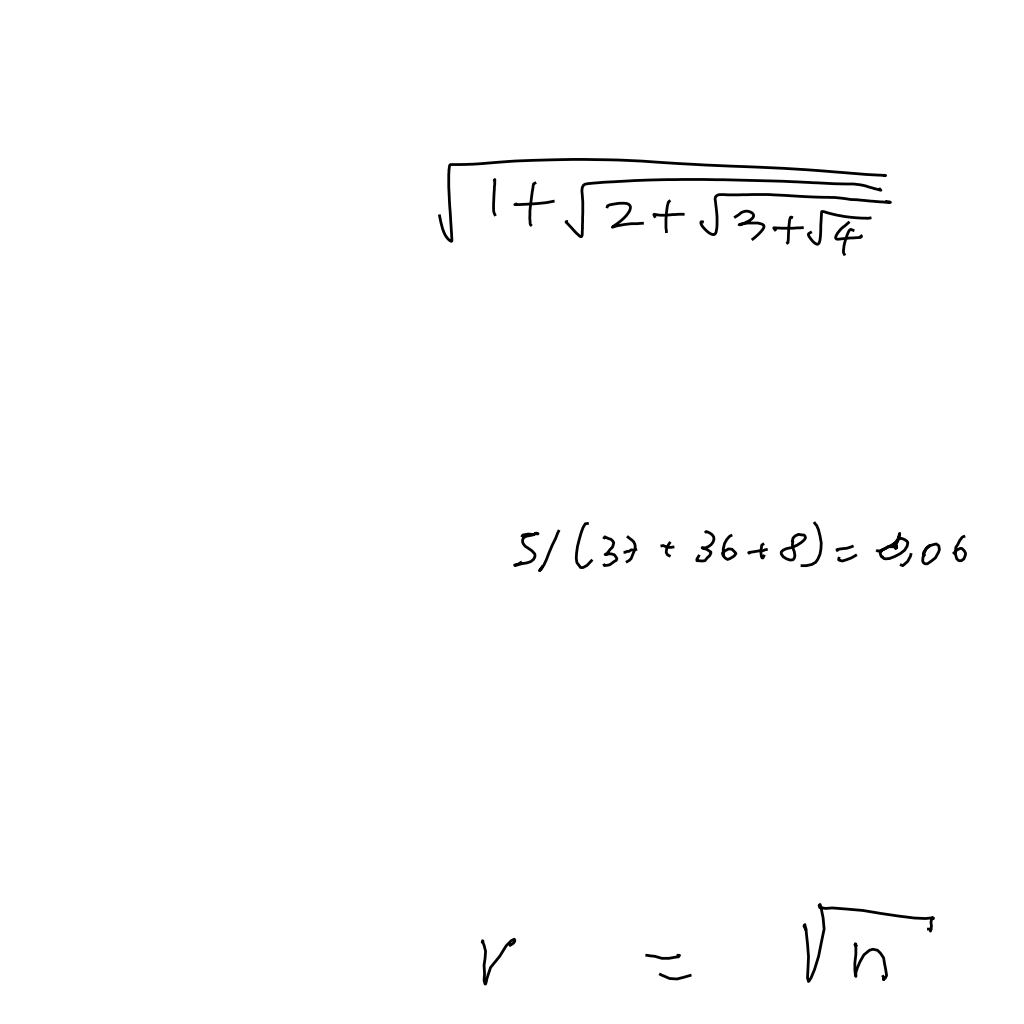 √(1+√(2+√(3+√4)))
5/(37+36+8)=0,06
r = √n